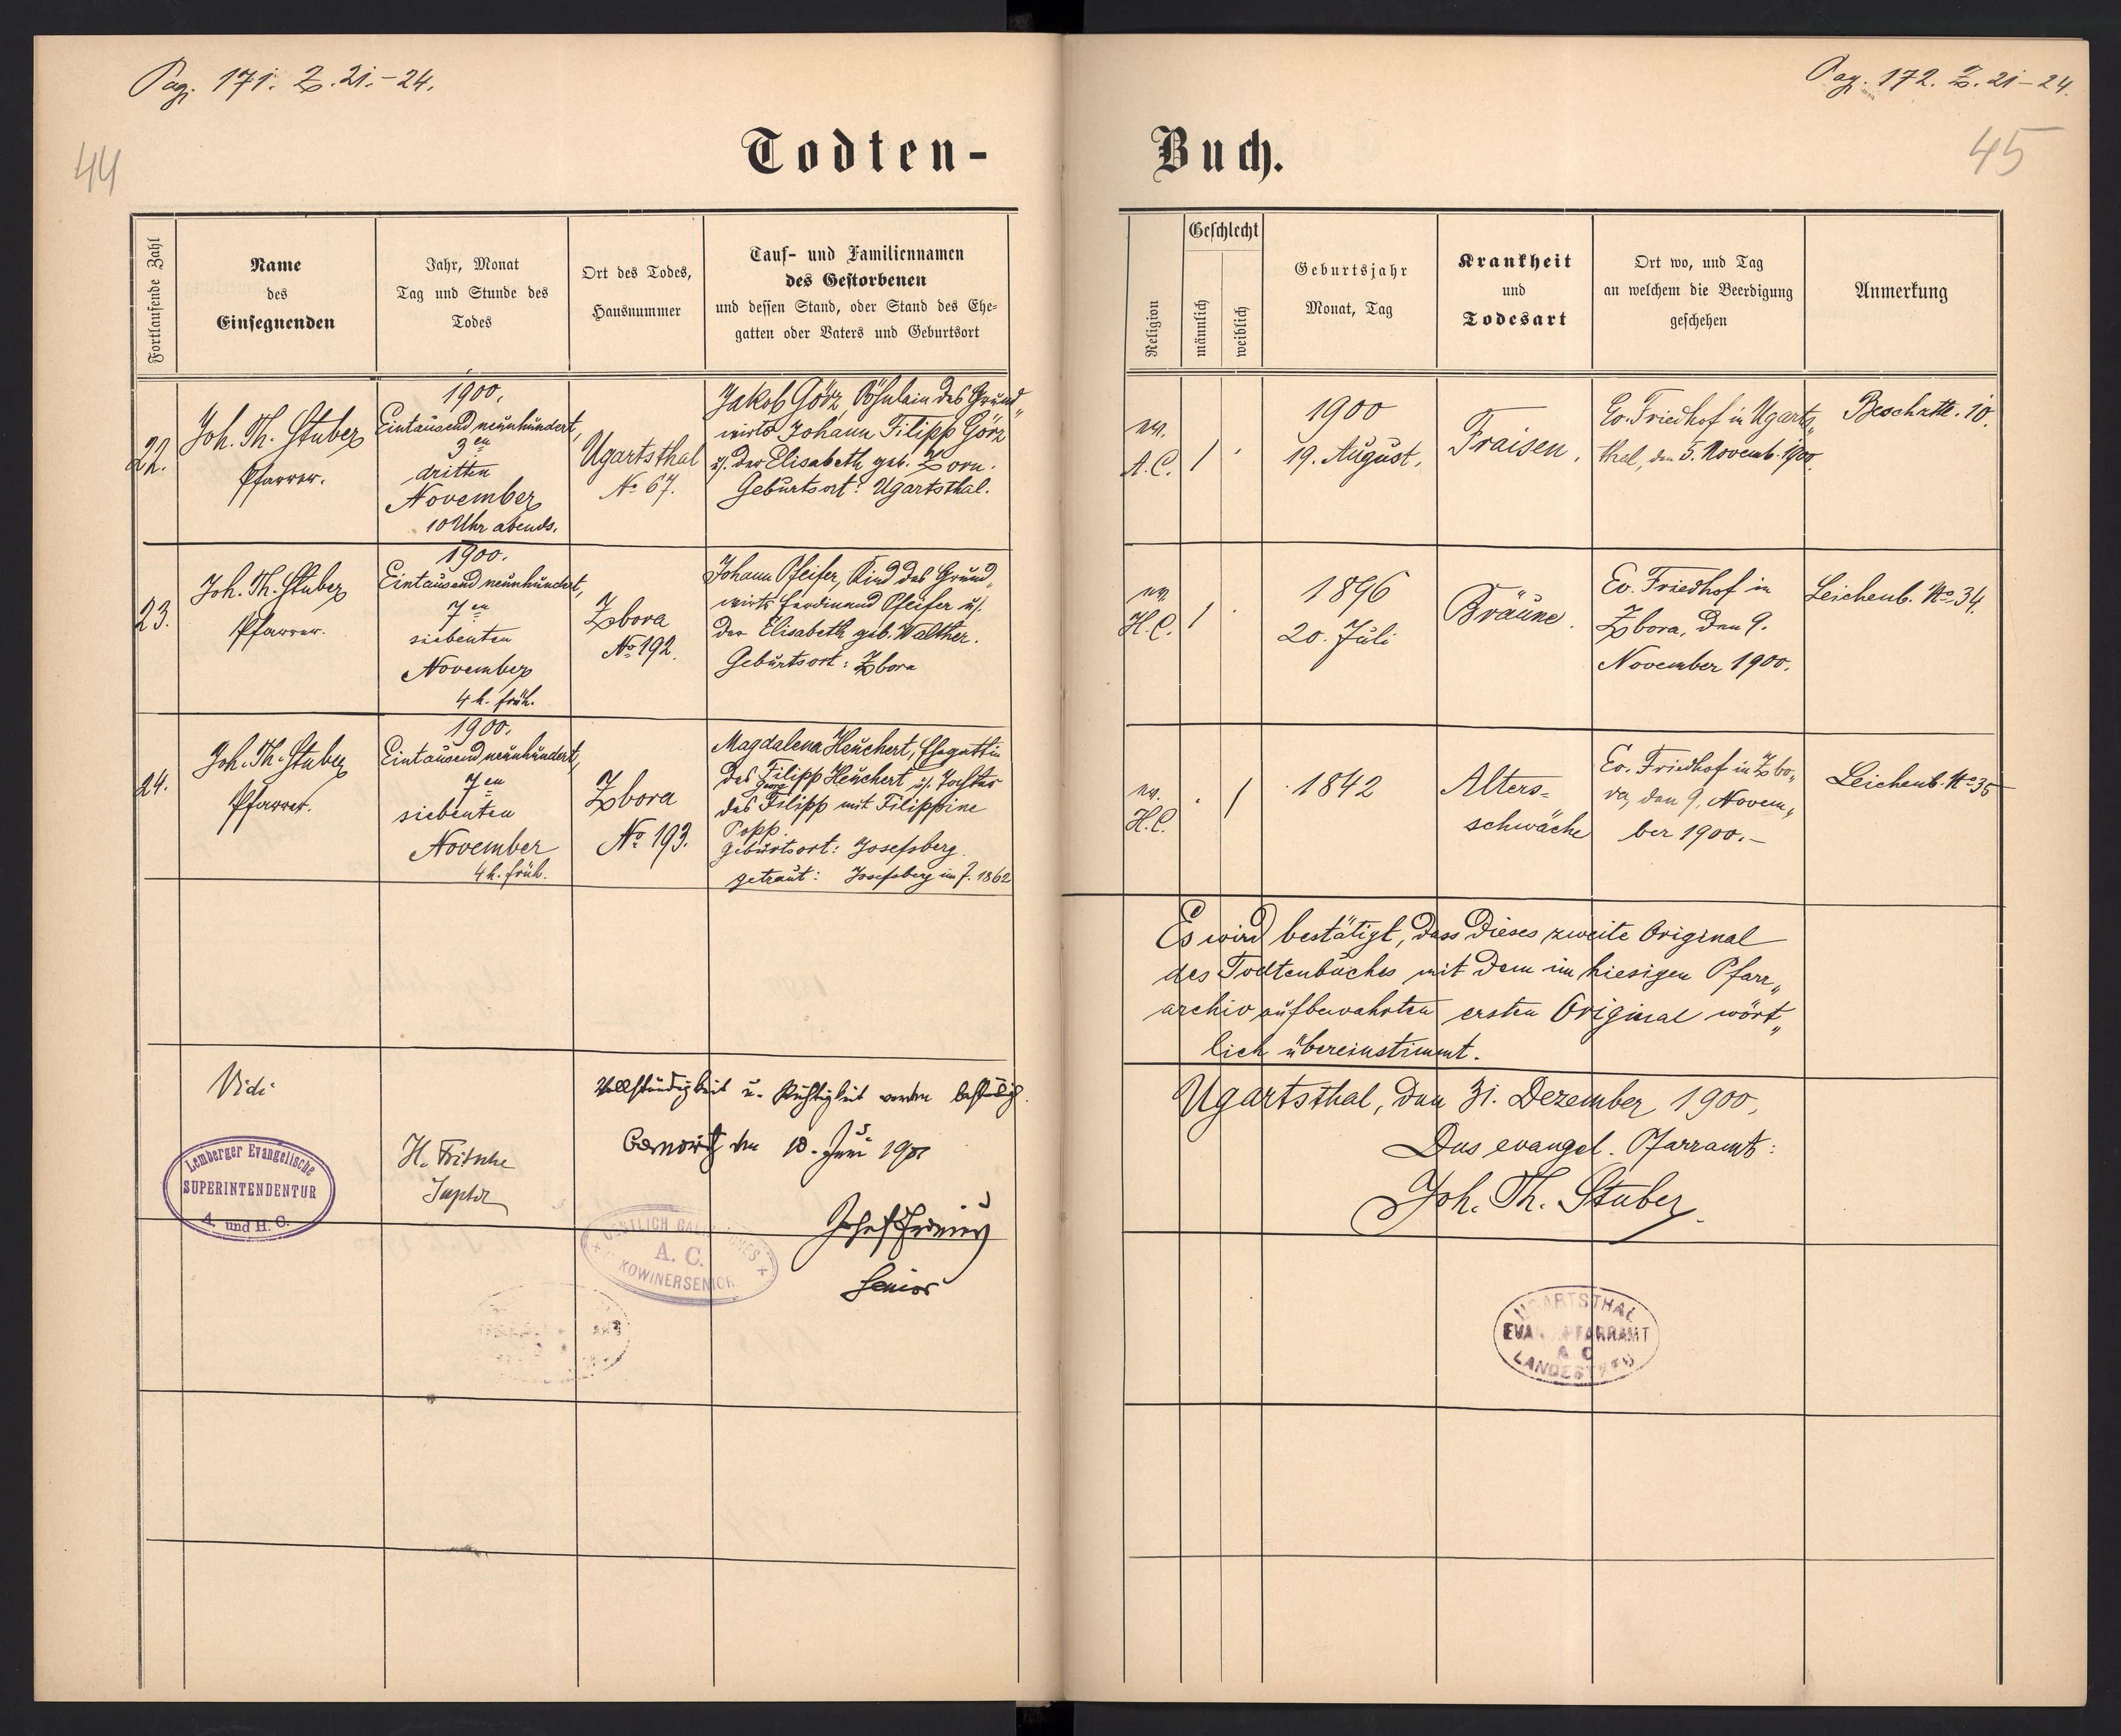 Pag. 171. Z. 21.-24.
44
Todten-
Fortlaufende Zahl
Name
des
Einsegnenden
Jahr, Monat
Tag und Stunde des
Todes
Ort des Todes,
Hausnummer
Tauf- und Familiennamen
des Gestorbenen
und dessen Stand, oder Stand des Ehe-
gatten oder Vaters und Geburtsort
22.
Joh. Th. Stuber
Pfarrer.
1900.
Eintausend neunhundert,
3en
dritten
November
10 Uhr abends.
Ugartsthal
No 67.
Jakob Görz, Söhnlein des Grund„
wirts Johann Filipp Görz
u. der Elisabeth geb. Zorn.
Geburtsort: Ugartsthal.
23.
Joh. Th. Stuber
Pfarrer.
1900.
Eintausend neunhundert,
7en
siebenten
November
4 h. früh.
Zbora
No 192.
Johann Pfeifer, Kind des Grund„
wirts Ferdinand Pfeifer u.
der Elisabeth geb. Walther.
Geburtsort: Zbora
24.
Joh. Th. Stuber
Pfarrer.
1900.
Eintausend neunhundert,
7en
siebenten
November
4 h. früh.
Zbora
No 193.
Magdalena Heuchert, Ehegattin
des Filipp Heuchert u. Tochter
Georg
des Filipp mit Filippine
Popp.
Geburtsort: Josefsberg.
getraut: Josefsberg im J. 1862
Vidi
Lemberger Evangelische
SUPERINTENDENTUR
A. und H. C.
H. Fritsche
Suptdt
Vollständigkeit u. Richtigkeit werden bestätigt.
den 10. Juni 1901
Senior
OESTLICH
A. C.
KOWINERSENIOR
Pag. 172. Z. 21-24.
45
Buch.
Religion
Geschlecht
männlich
weiblich
Geburtsjahr
Monat, Tag
Krankheit
und
Todesart
Ort wo, und Tag
an welchem die Beerdigung
geschehen
Anmerkung
ev.
A.C.
1
.
1900
19. August.
Fraisen.
Ev. Friedhof in Ugarts„
thal, den 5. Novemb. 1900.
Beschztt. 10.
ev.
H.C.
1
.
1896
20. Juli
Bräune.
Ev. Friedhof in
Zbora, den 9.
November 1900.
Leichenb. No 34.
ev.
H.C.
.
1
1842
Alters=
schwäche
Ev. Friedhof in Zbo„
ra, den 9. Novem„
ber 1900.-
Leichenb. No 35
Es wird bestätigt, dass dieses zweite Original
des Todtenbuches mit dem im hiesigen Pfarr„
archiv aufbewahrten ersten Original wört„
lich übereinstimmt.
Ugartsthal, den 31. Dezember 1900.
Das evangel. Pfarramt:
Joh. Th. Stuber.
UGARTSTHAL
EVANG. PFARRAMT
A C